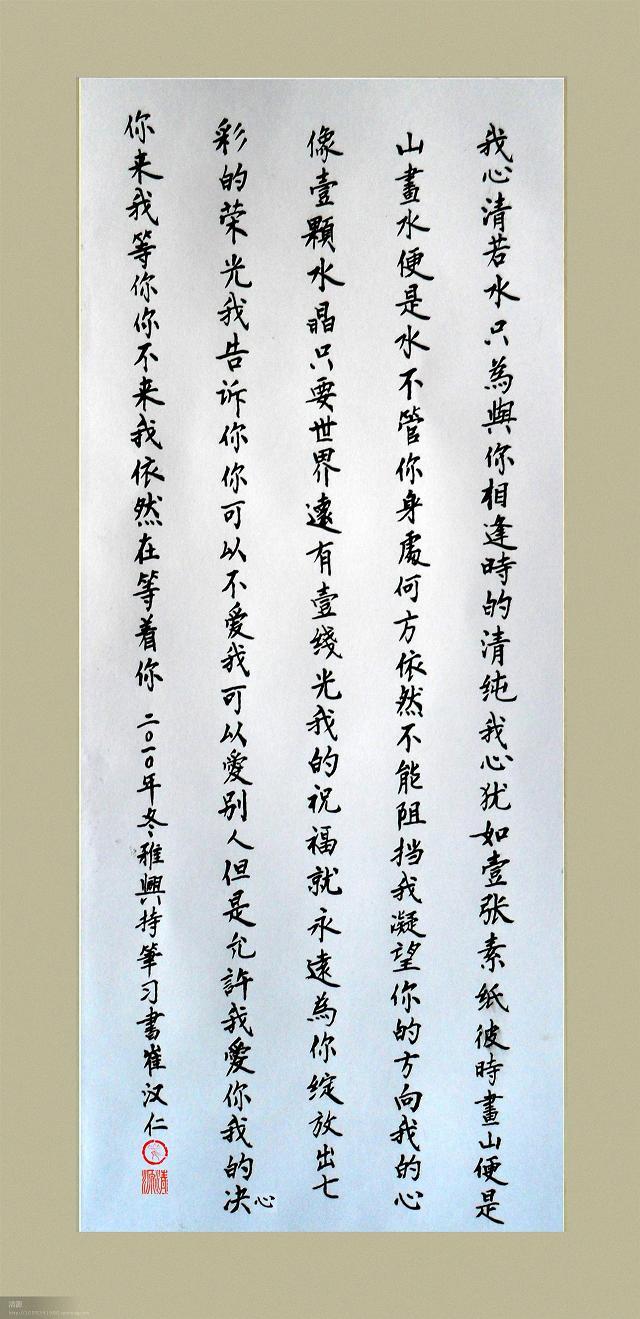 我心清若水只為與你相逢時的清纯我心犹如壹张素纸彼時畫山便是
山畫水便是水不管你身處何方依然不能阻挡我凝望你的方向我的心
像壹顆水晶只要世界遠有壹线光我的祝福就永遠為你綻放出七
彩的荣光我告诉你你可以不愛我可以愛别人但是允許我愛你我的决
心
你来我等你你不来我依然在等着你 二〇一〇年冬雅興持筆习書崔汉仁
清源